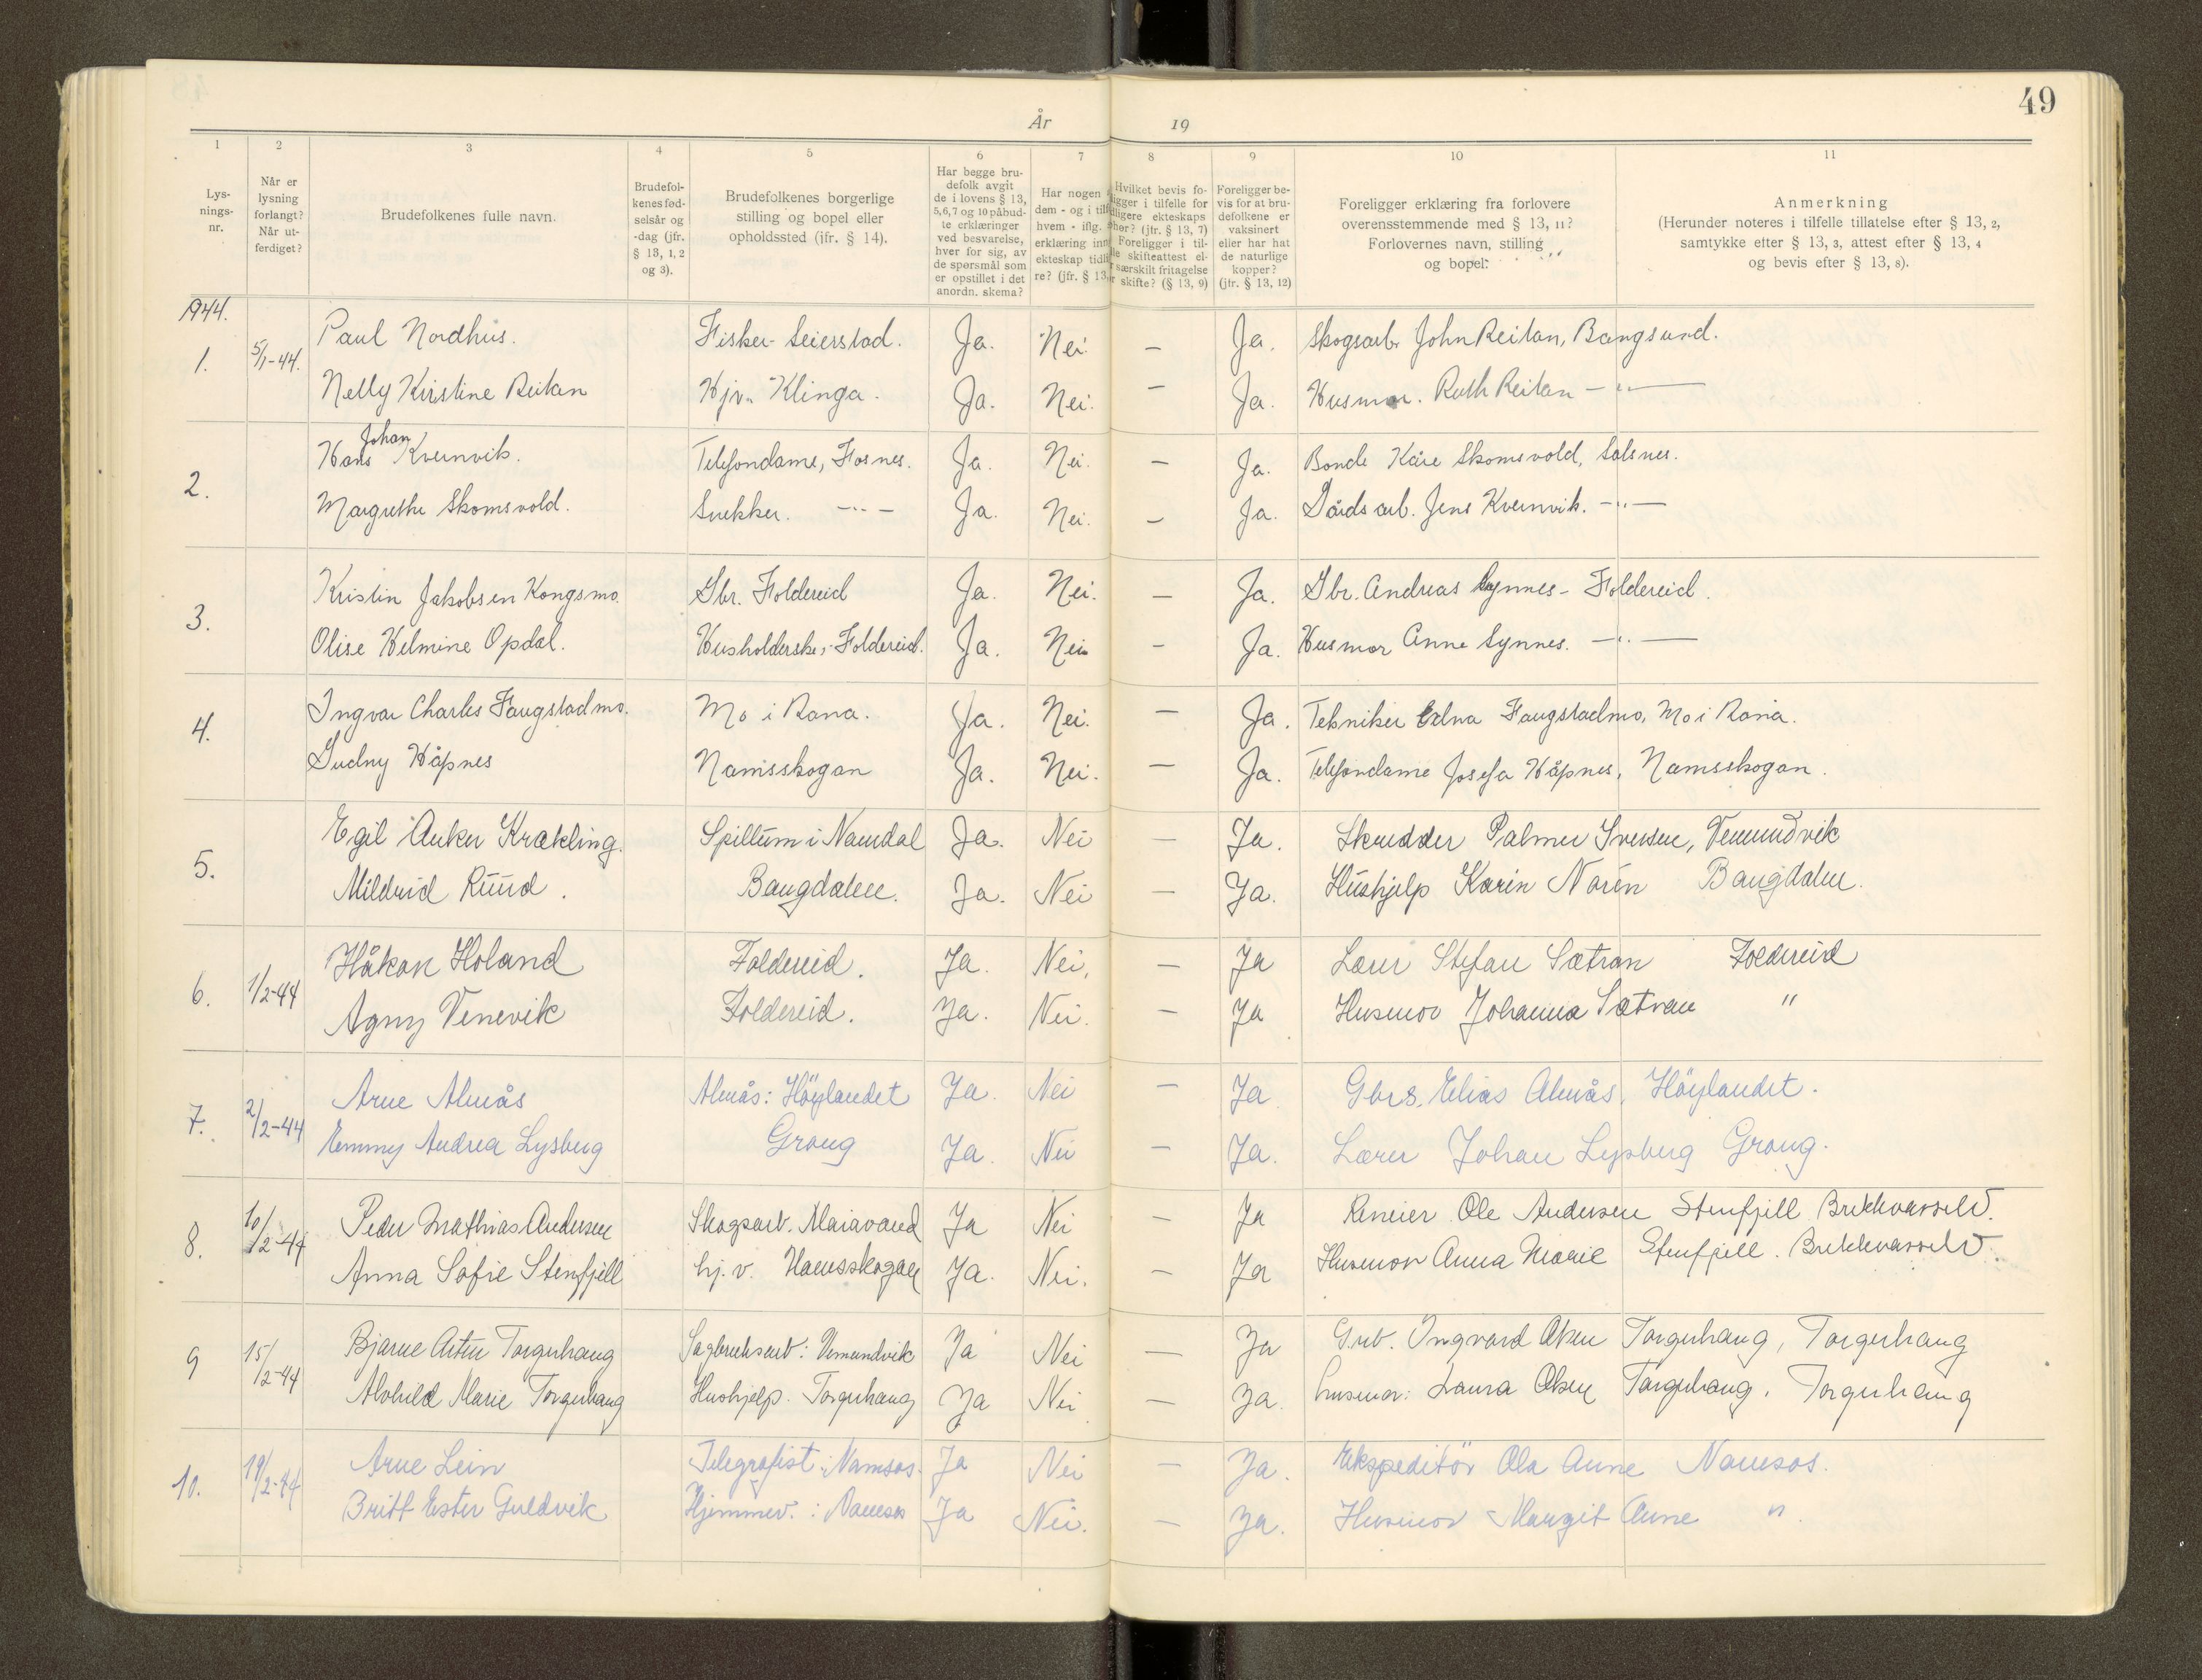 49
År 19
1 2 3 4 5 6 7 8 9 10 11
Lys-
nings-
nr.
Når er
lysning
forlangt?
Når ut-
ferdiget?
Brudefolkenes fulle navn.
Brudefol-
kenes fød-
selsår og
-dag (jfr.
§ 13, 1, 2
og 3).
Brudefolkenes borgerlige
stilling og bopel eller
opholdssted (jfr. § 14).
Har begge bru-
defolk avgit
de i lovens § 13,
5, 6, 7 og 10 påbud-
te erklæringer
ved besvarelse,
hver for sig, av
de spørsmål som
er opstillet i det
anordn. skema?
Har nogen
dem - og i tilf
hvem - iflg.
erklæring inn
ekteskap tidli
re? (jfr. § 13,
Hvilket bevis fo-
ligger i tilfelle for
ligere ekteskaps
phør? (jfr. § 13, 7)
Foreligger i til-
le skifteattest el-
særskilt fritagelse
r skifte? (§ 13, 9)
Foreligger be-
vis for at bru-
defolkene er
vaksinert
eller har hat
de naturlige
kopper?
(jfr. § 13, 12)
Foreligger erklæring fra forlovere
overensstemmende med § 13, 11?
Forlovernes navn, stilling
og bopel.
Anmerkning
(Herunder noteres i tilfelle tillatelse efter § 13, 2,
samtykke efter § 13, 3, attest efter § 13, 4
og bevis efter § 13, 8).
1944.
1. 5/1-44. Paul Nordhus. Fisker - Seierstad. Ja. Nei. — Ja. Skogsarb. John Reitan, Bangsund.
Nelly Kristine Reitan Hjv. Klinga. Ja. Nei. — Ja. Husmor. Ruth Reitan —"—
2. Hans Johan Kvernvik. Telefondame, Fosnes. Ja. Nei. — Ja. Bonde Kåre Skomsvold, Salsnes.
Margrethe Skomsvold. Snekker. —"— Ja. Nei. — Ja. Gårdsarb. Jens Kvernvik. —"—
3. Kristin Jakobsen Kongsmo. Gbr. Foldereid Ja. Nei. — Ja. Gbr. Andreas Synnes - Foldereid.
Olise Helmine Opdal. Husholderske, Foldereid. Ja. Nei. — Ja. Husmor Anne Synnes. —"—
4. Ingvar Charles Faugstadmo. Mo i Rana. Ja. Nei. — Ja. Tekniker Edna Faugstadmo, Mo i Rana.
Gudny Håpnes Namsskogan Ja. Nei. — Ja. Telefondame Josefa Håpnes, Namsskogan.
5. Egil Anker Krækling. Spillum i Namdal Ja. Nei — Ja. Skredder Palmer Iversen, Vemundvik
Mildrid Ruud. Bangdalen. Ja. Nei — Ja. Hushjelp Karin Norén Bangdalen.
6. 1/2-44 Håkon Holand Foldereid. Ja. Nei, — Ja Lærer Stefan Sætran Foldereid
Agny Venevik Foldereid. Ja. Nei. — Ja Husmor Johanna Sætran "
7. 2/2-44 Arne Almås Almås: Höylandet Ja. Nei — Ja Gbrs. Elias Almås, Höylandet.
Emmy Andrea Lysberg Grong Ja. Nei — Ja. Lærer Johan Lysberg Grong.
8. 10/2-44 Peder Mathias Andersen Skogsarb. Maiavand Ja Nei — Ja Reneier Ole Andersen Stenfjell Brekkvasselv.
Anna Sofie Stenfjell hj. v. Namsskogan Ja. Nei. — Ja Husmor Anna Marie Stenfjell. Brekkvasselv.
9 15/2-44 Bjarne Artur Torgerhaug Sagbruksarb: Vemundvik Ja Nei — Ja G.rb. Ingvard Olsen Torgerhaug, Torgerhaug
Alvhild Marie Torgerhaug Hushjelp. Torgerhaug Ja Nei — Ja. husmor: Laura Olsen Torgerhaug. Torgerhaug
10. 19/2-44 Arne Lein Telegrafist: Namsos. Ja Nei — Ja. Ekspeditör Ola Aune Namsos.
Britt Ester Guldvik Hjemmev.: Namsos Ja Nei. — Ja. Husmor Margit Aune "